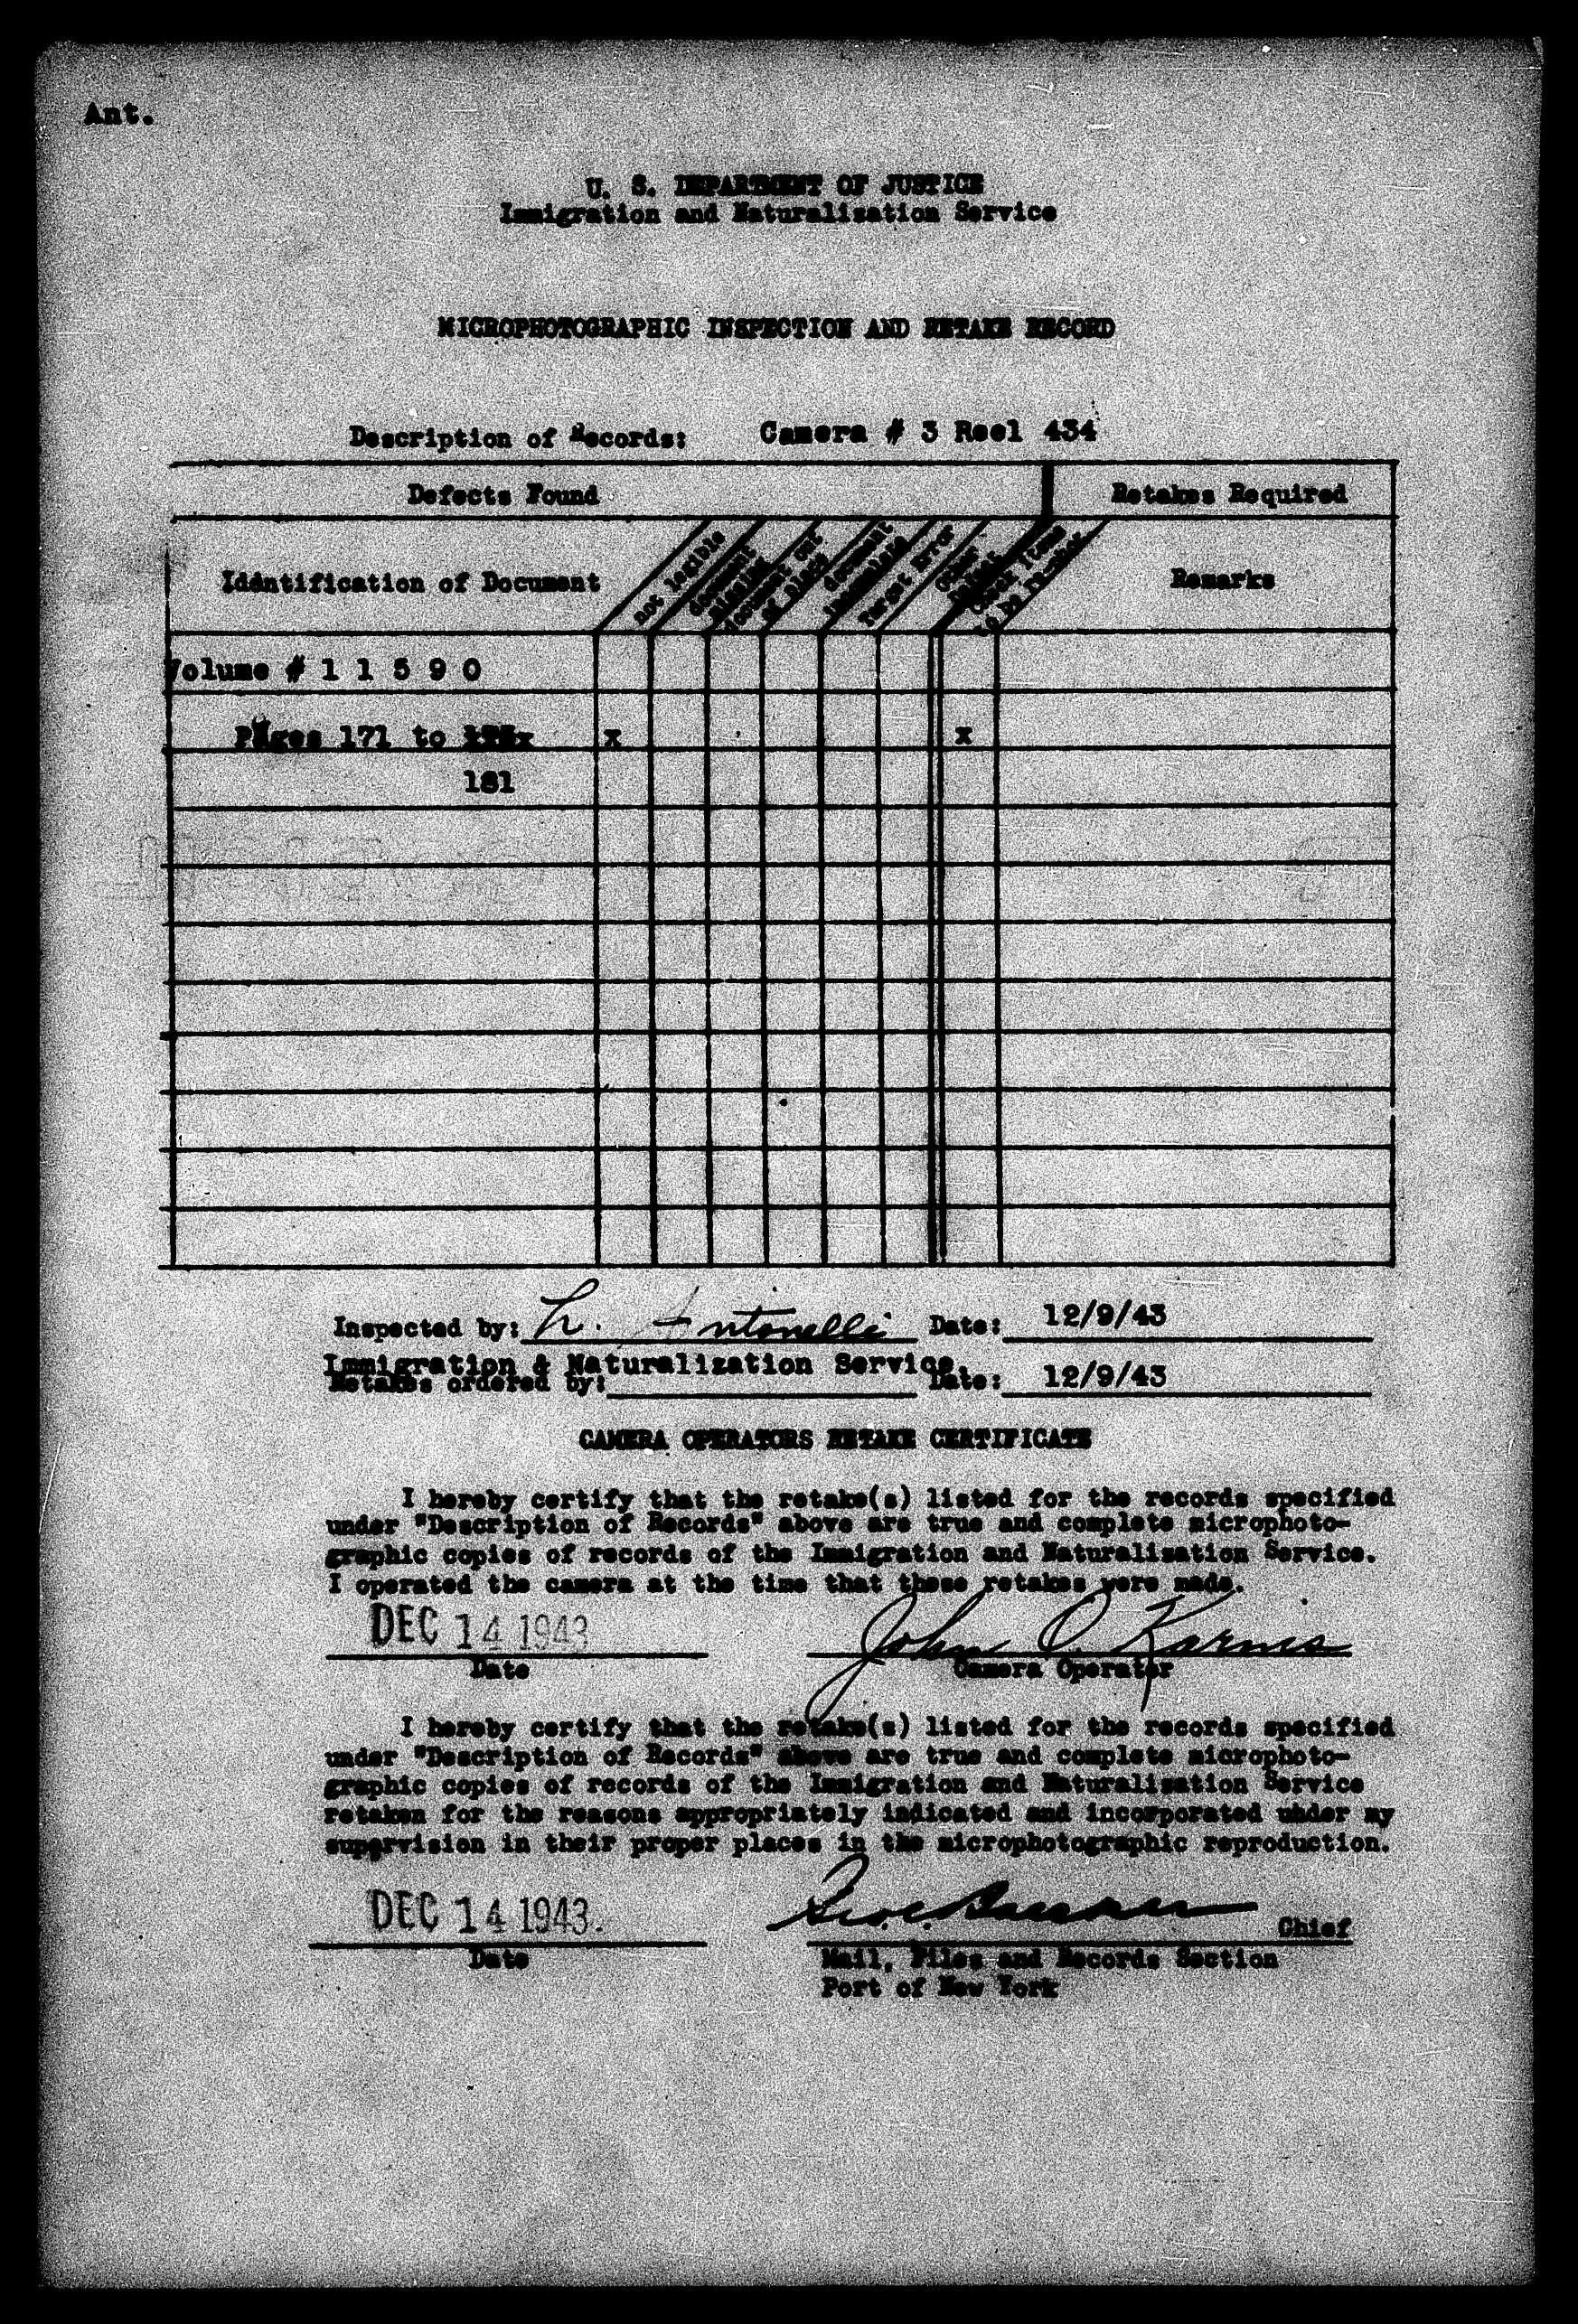 Ant.
U. S. DEPARTMENT OF JUSTICE
Immigration and Naturalization Service
MICROPHOTOGRAPHIC INSPECTION AND RETAKE RECORD
Description of Records: Camera # 3 Reel 434
Defects Found
Retakes Required
Identification of Document
not legible
document
missing
document out
of place
document
incomplete
Target Error
Other
Defect
Check items
to be re-
Remarks
Volume # 1 1 5 9 0
Pages 171 to x x
181
Inspected by: L. Antonelli Date: 12/9/43
Immigration & Naturalization Service.
Retakes ordered by: Date: 12/9/43
CAMERA OPERATORS RETAKE CERTIFICATE
I hereby certify that the retake(s) listed for the records specified
under "Description of Records" above are true and complete microphoto-
graphic copies of records of the Immigration and Naturalization Service.
I operated the camera at the time that these retakes were made.
DEC 14 1943 John O. Karnis
Date Camera Operator
I hereby certify that the retake(s) listed for the records specified
under "Description of Records" above are true and complete microphoto-
graphic copies of records of the Immigration and Naturalization Service
retaken for the reasons appropriately indicated and incorporated under my
supervision in their proper places in the microphotographic reproduction.
DEC 14 1943. Chief
Date Mail, Files and Records Section
Port of New York